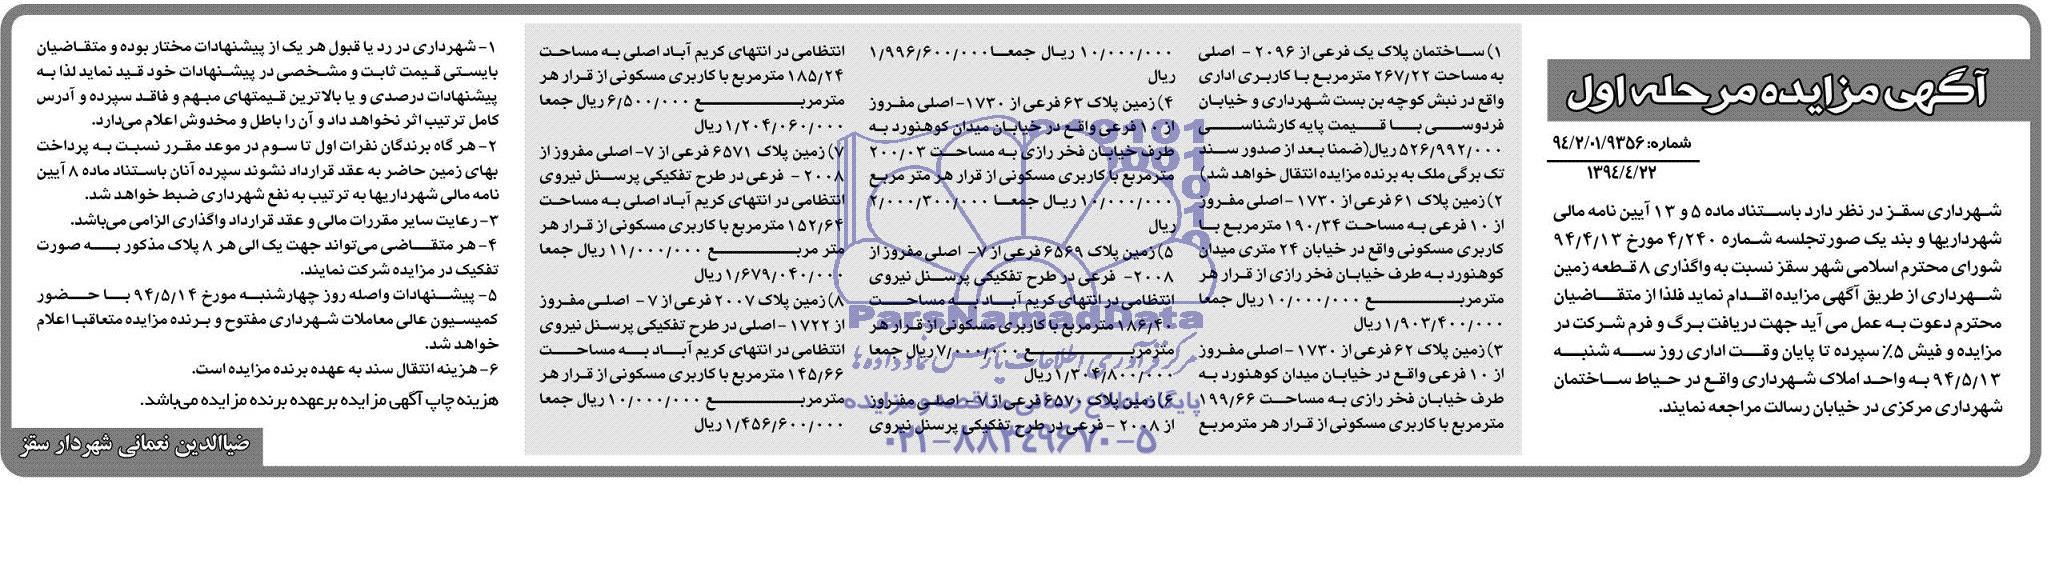 آگهی مزایده مرحله اول
شماره: ۹۴/۲/۰۱/۹۳۵۶
۱۳۹۴/۴/۲۲
شهرداری سقز در نظر دارد باستناد ماده ۵ و ۱۳ آیین نامه مالی
شهرداریها و بند یک صورتجلسه شماره ۴/۲۴۰ مورخ ۹۴/۴/۱۳
شورای محترم اسلامی شهر سقز نسبت به واگذاری ۸ قطعه زمین
شهرداری از طریق آگهی مزایده اقدام نماید فلذا از متقاضیان
محترم دعوت به عمل می آید جهت دریافت برگ و فرم شرکت در
مزایده و فیش ۵٪ سپرده تا پایان وقت اداری روز سه شنبه
۹۴/۵/۱۳ به واحد املاک شهرداری واقع در حیاط ساختمان
شهرداری مرکزی در خیابان رسالت مراجعه نمایند.
۱) ساختمان پلاک یک فرعی از ۲۰۹۶ - اصلی
به مساحت ۲۶۷/۲۲ مترمربع با کاربری اداری
واقع در نبش کوچه بن بست شهرداری و خیابان
فردوسی با قیمت پایه کارشناسی
۵۲۶/۹۹۲/۰۰۰ ریال(ضمنا بعد از صدور سند
تک برگی ملک به برنده مزایده انتقال خواهد شد)
۲) زمین پلاک ۶۱ فرعی از ۱۷۳۰- اصلی مفروز
از ۱۰ فرعی به مساحت ۱۹۰/۳۴ مترمربع با
کاربری مسکونی واقع در خیابان ۲۴ متری میدان
کوهنورد به طرف خیابان فخر رازی از قرار هر
مترمربع ۱۰/۰۰۰/۰۰۰ ریال جمعا
۱/۹۰۳/۴۰۰/۰۰۰ ریال
۳) زمین پلاک ۶۲ فرعی از ۱۷۳۰ -اصلی مفروز
از ۱۰ فرعی واقع در خیابان میدان کوهنورد به
طرف خیابان فخر رازی به مساحت ۱۹۹/۶۶
مترمربع با کاربری مسکونی از قرار هر مترمربع
۱۰/۰۰۰/۰۰۰ ریال جمعا ۱/۹۹۶/۶۰۰/۰۰۰
ریال
۴) زمین پلاک ۶۳ فرعی از ۱۷۳۰- اصلی مفروز
از ۱۰ فرعی واقع در خیابان میدان کوهنورد به
طرف خیابان فخر رازی به مساحت ۲۰۰/۰۳
مترمربع با کاربری مسکونی از قرار هر متر مربع
۱۰/۰۰۰/۰۰۰ ریال جمعا ۲/۰۰۰/۳۰۰/۰۰۰
ریال
۵) زمین پلاک ۶۵۶۹ فرعی از ۷- اصلی مفروز از
۲۰۰۸- فرعی در طرح تفکیکی پرسنل نیروی
انتظامی در انتهای کریم آباد به مساحت
۱۸۶/۴۰ مترمربع با کاربری مسکونی از قرار هر
مترمربع ۷/۰۰۰/۰۰۰ ریال جمعا
۱/۳۰۴/۸۰۰/۰۰۰ ریال
۶) زمین پلاک ۶۵۷۰ فرعی از ۷- اصلی مفروز
از ۲۰۰۸ - فرعی در طرح تفکیکی پرسنل نیروی
انتظامی در انتهای کریم آباد اصلی به مساحت
۱۸۵/۲۴ مترمربع با کاربری مسکونی از قرار هر
مترمربع ۶/۵۰۰/۰۰۰ ریال جمعا
۱/۲۰۴/۰۶۰/۰۰۰ ریال
۷) زمین پلاک ۶۵۷۱ فرعی از ۷- اصلی مفروز از
۲۰۰۸ - فرعی در طرح تفکیکی پرسنل نیروی
انتظامی در انتهای کریم آباد اصلی به مساحت
۱۵۲/۶۴ مترمربع با کاربری مسکونی از قرار هر
متر مربع ۱۱/۰۰۰/۰۰۰ ریال جمعا
۱/۶۷۹/۰۴۰/۰۰۰ ریال
۸) زمین پلاک ۲۰۰۷ فرعی از ۷ - اصلی مفروز
از ۱۷۲۲ - اصلی در طرح تفکیکی پرسنل نیروی
انتظامی در انتهای کریم آباد به مساحت
۱۴۵/۶۶ مترمربع با کاربری مسکونی از قرار هر
مترمربع ۱۰/۰۰۰/۰۰۰ ریال جمعا
۱/۴۵۶/۶۰۰/۰۰۰ ریال
۱- شهرداری در رد یا قبول هر یک از پیشنهادات مختار بوده و متقاضیان
بایستی قیمت ثابت و مشخصی در پیشنهادات خود قید نماید لذا به
پیشنهادات درصدی و یا بالاترین قیمتهای مبهم و فاقد سپرده و آدرس
کامل ترتیب اثر نخواهد داد و آن را باطل و مخدوش اعلام می‌دارد.
۲- هر گاه برندگان نفرات اول تا سوم در موعد مقرر نسبت به پرداخت
بهای زمین حاضر به عقد قرارداد نشوند سپرده آنان باستناد ماده ۸ آیین
نامه مالی شهرداریها به ترتیب به نفع شهرداری ضبط خواهد شد.
۳- رعایت سایر مقررات مالی و عقد قرارداد واگذاری الزامی می‌باشد.
۴- هر متقاضی می‌تواند جهت یک الی هر ۸ پلاک مذکور به صورت
تفکیک در مزایده شرکت نمایند.
۵- پیشنهادات واصله روز چهارشنبه مورخ ۹۴/۵/۱۴ با حضور
کمیسیون عالی معاملات شهرداری مفتوح و برنده مزایده متعاقبا اعلام
خواهد شد.
۶- هزینه انتقال سند به عهده برنده مزایده است.
هزینه چاپ آگهی مزایده برعهده برنده مزایده می‌باشد.
ضیاالدین نعمانی شهردار سقز
ParsNamadData
مرکز فرآوری اطلاعات پارس نماد داده‌ها
پایگاه اطلاع رسانی مناقصه و مزایده
۰۲۱-۸۸۳۴۹۶۷۰-۵